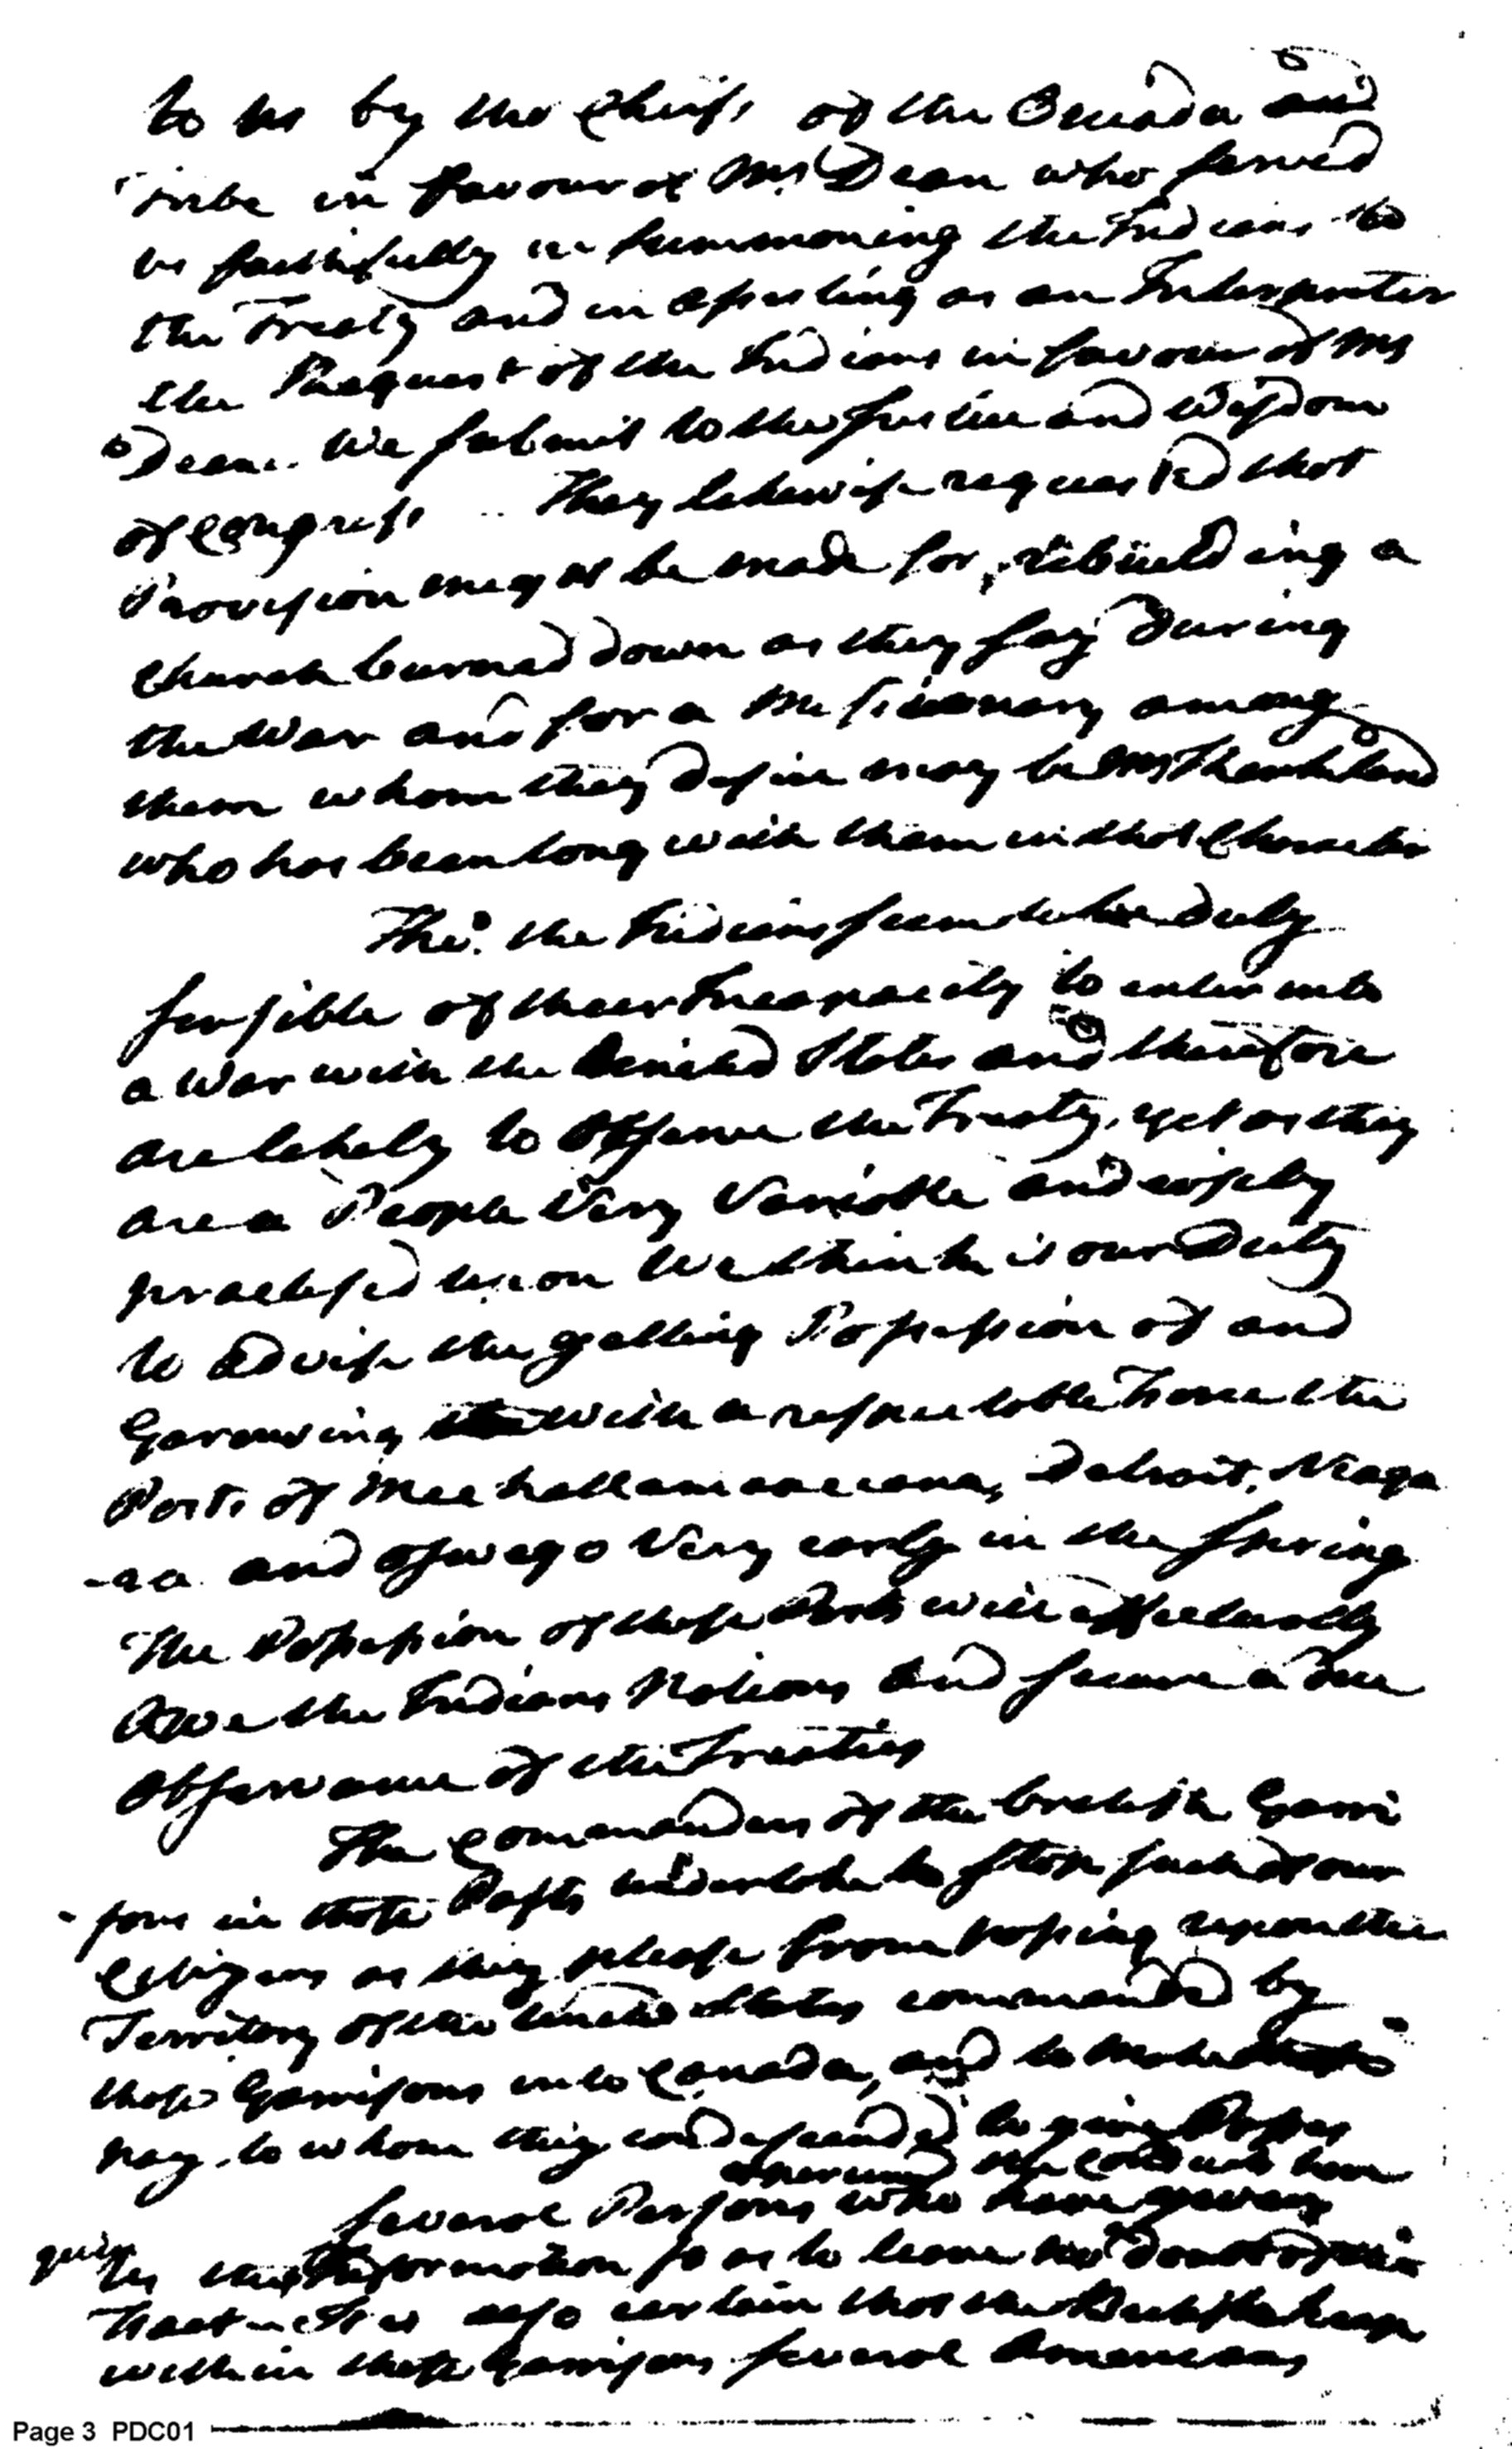 to us by the Chiefs of the Oneida and
Tribe in favour of Mr Dean who served
us faithfully in summoning the Indians to
the Treaty and in assisting as an Interpreter
the Request of the Indians in favour of Mr
Deane We submit to the justice and Wisdom
of Congress .. They likewise requested that
Provision might be made for, rebuilding a
Church burned down as they say during
the War and for a Missionary among
them whom they desire may be Mr
who has been long with them in that Character
Tho. the Indians seem to be duly
sensible of their Incapacity to enter into
a War with the United States and therefore
are likely to observe the Treaty, yet as they
are a People Very Variable and easily
practised upon We think it our Duty
to advise the getting Possession of and
Garrowing with a respectable Force the
Posts of Detroit, Niaga
-ra and Oswego Very early in the spring
The Possession of these Posts will effectually
Awe the Indians Nations and secure a due
Observance of the Treaties
The Commanders of the british Garri
-sons in those Posts undertake to stop such of our
Citizens as they please from passing upon the
Territory of the United States commanded by
those Garrisons into Canada, and to make
pay, to whom they condescended to give Passes
several Persons who have
given
us this Information so as to leave no doubt of
Fact - It is also certain that the British keep
within these Garrisons several Americans
Page 3 PDC01